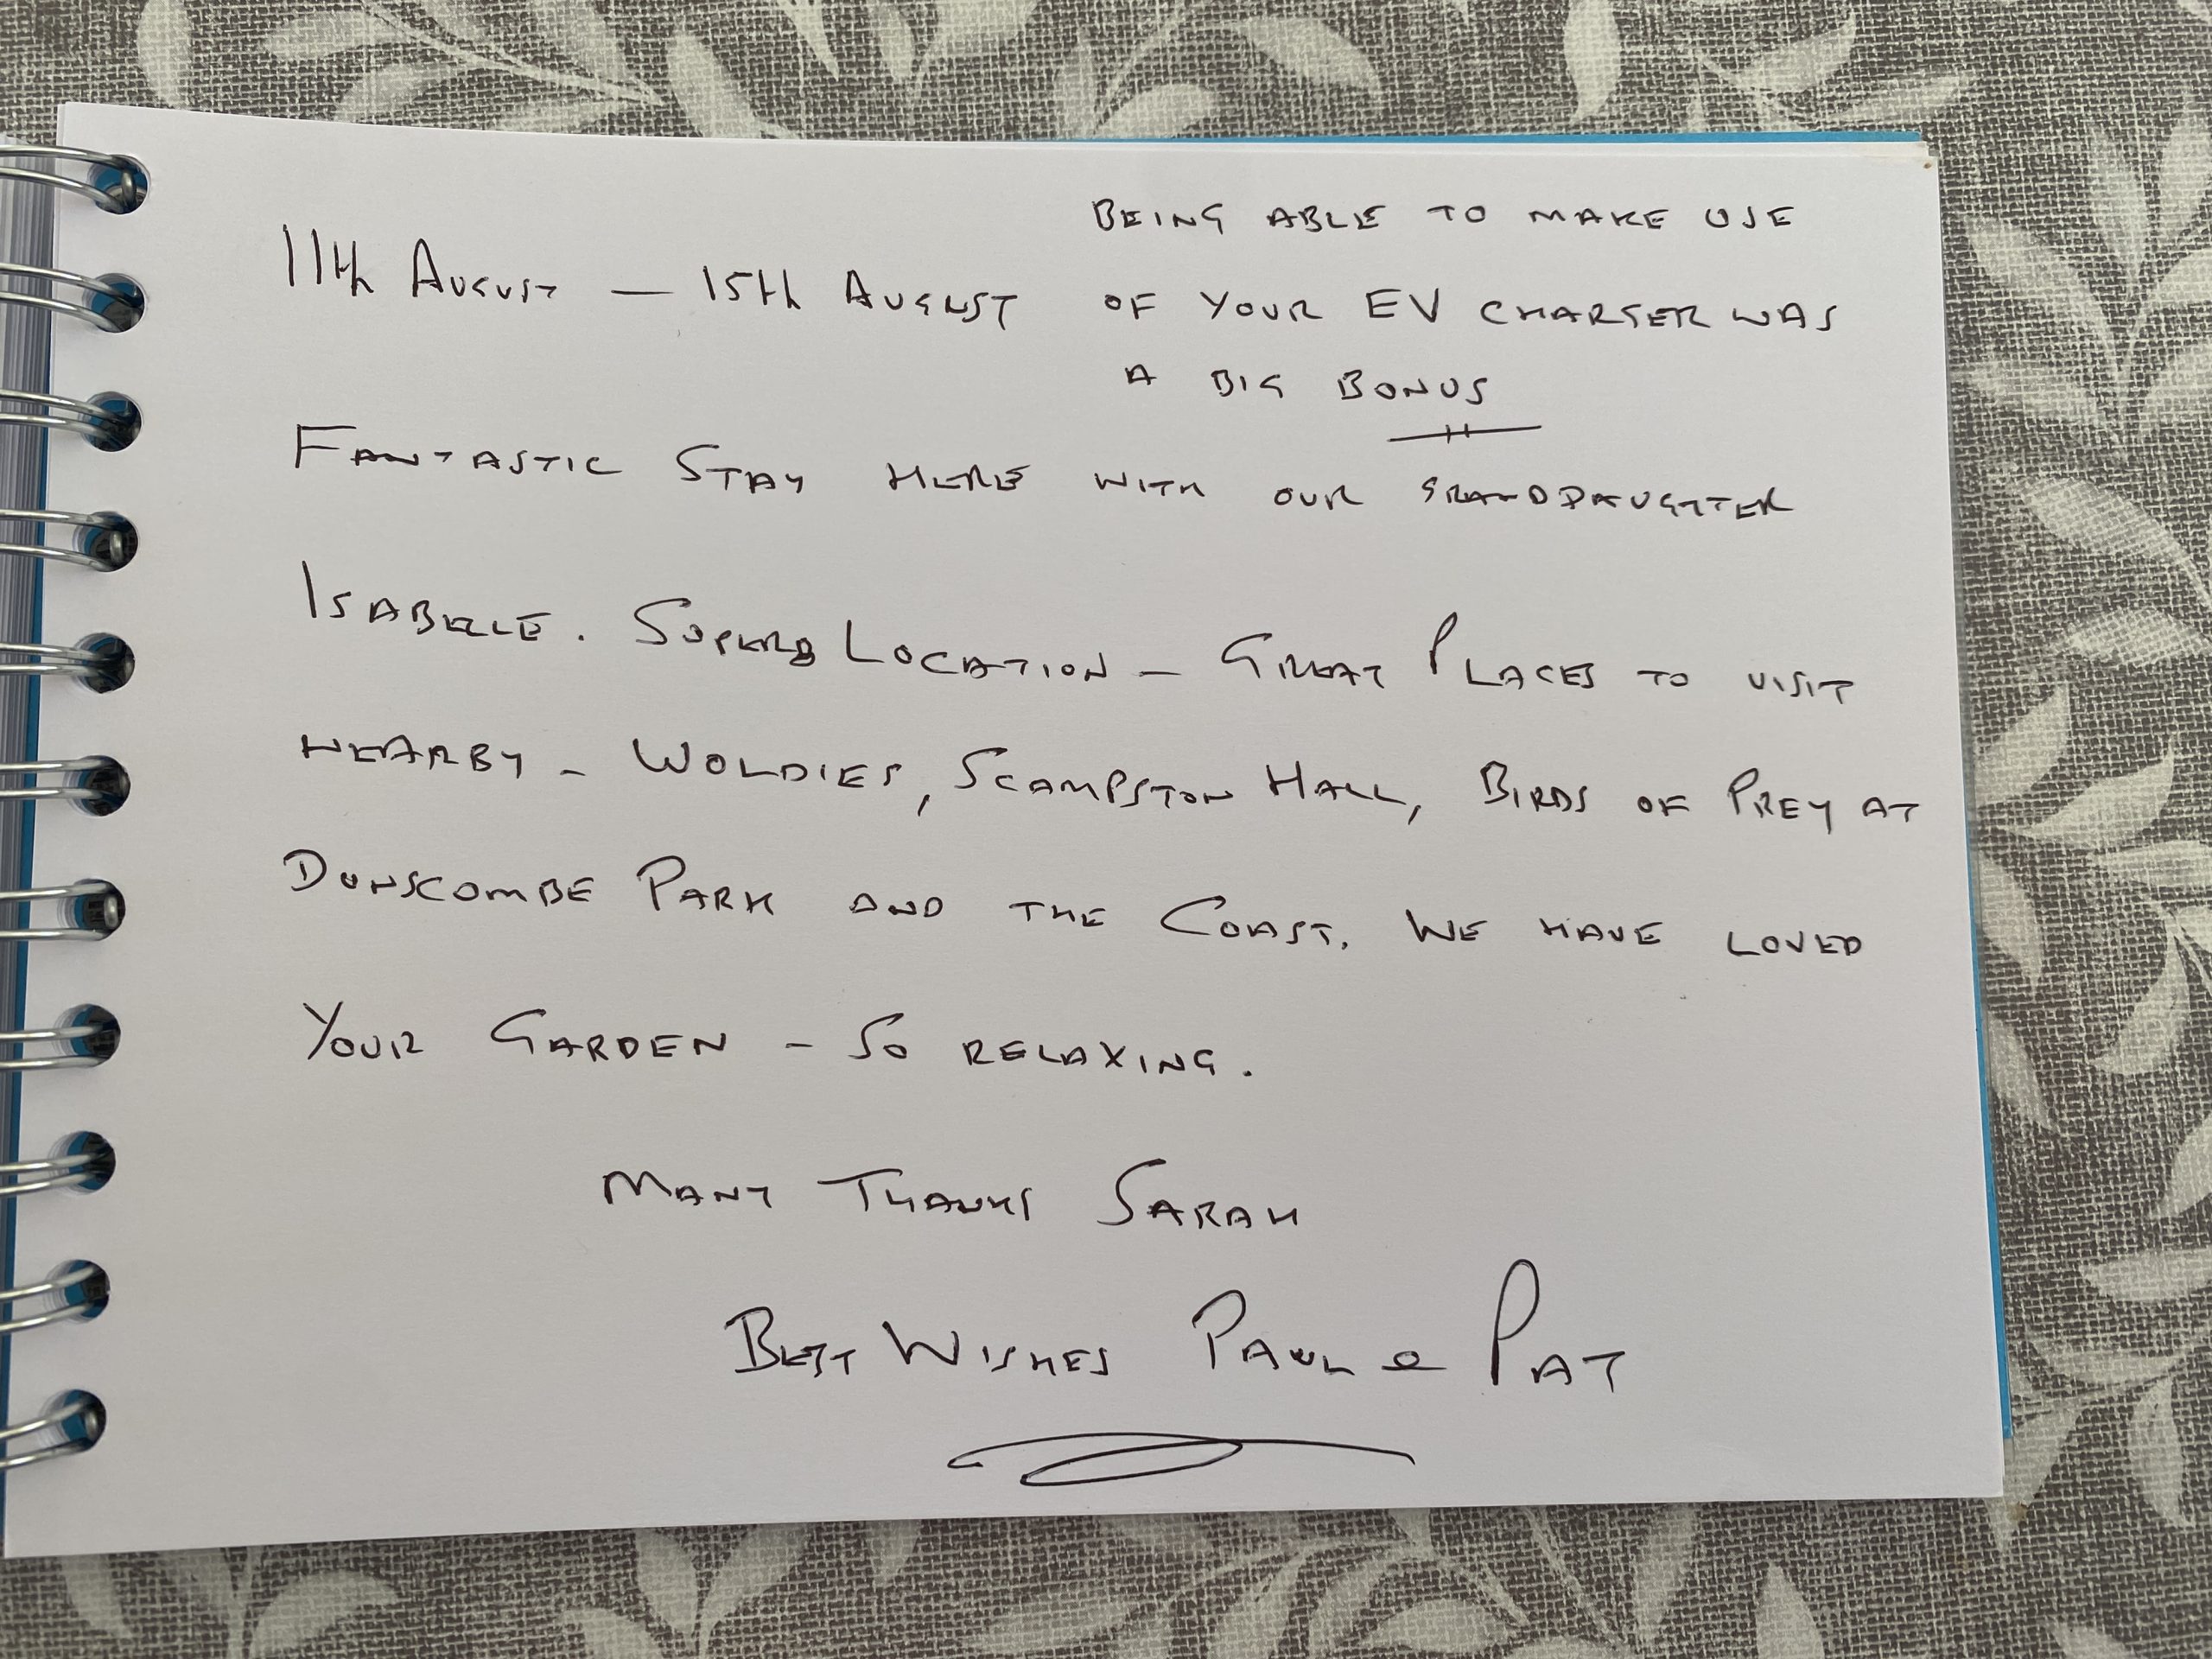 BEING ABLE TO MAKE USE
11th AUGUST — 15th AUGUST OF YOUR EV CHARGER WAS
A BIG BONUS
FANTASTIC STAY HERE WITH OUR GRANDDAUGHTER
ISABELLE. SUPERB LOCATION — GREAT PLACES TO VISIT
NEARBY - WOLDIES, SCAMPSTON HALL, BIRDS OF PREY AT
DUNSCOMBE PARK AND THE COAST. WE HAVE LOVED
YOUR GARDEN - SO RELAXING.
MANY THANKS SARAH
BEST WISHES PAUL & PAT